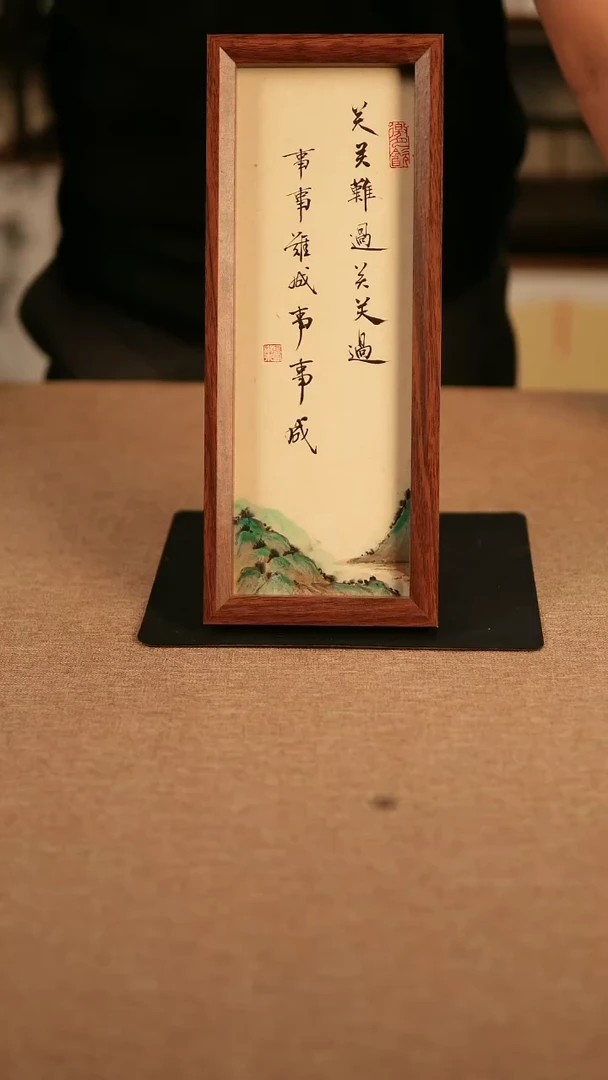 关关難過关关過
事事難成事事成